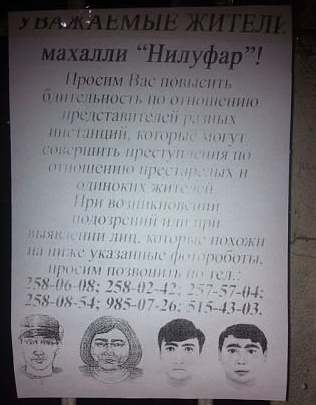 УВАЖАЕМЫЕ ЖИТЕЛИ
махалли “Нилуфар”!
Просим Вас повысить
бдительность по отношению
представителей разных
инстанций, которые могут
совершить преступления по
отношению престарелых и
одиноких жителей
При возникновении
подозрений или при
выявлении лиц, которые похожи
на ниже указанные фотороботы,
просим позвонить по тел.:
258-06-08; 258-02-42; 257-57-04;
258-08-54; 985-07-26; 515-43-03.